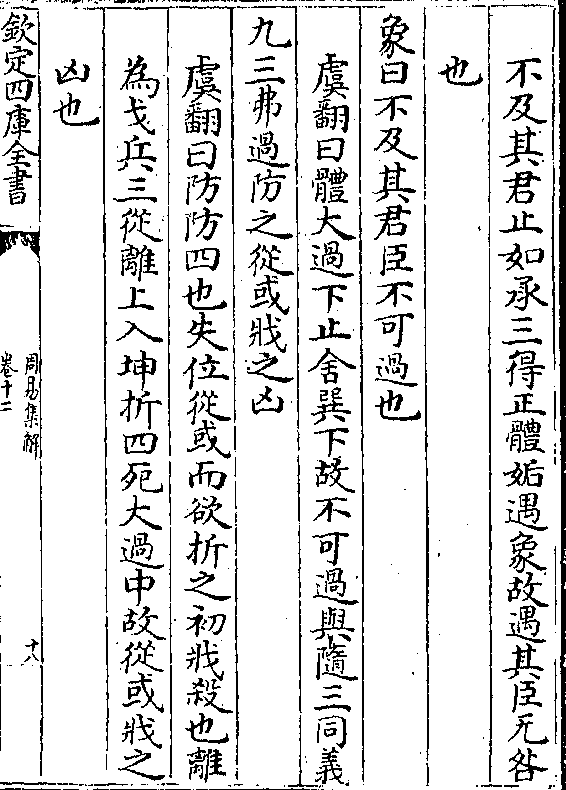 不及其君止如承三得正體姤遇象故遇其臣无咎
也
象曰不及其君臣不可過也
虞翻曰體大過下止舍巽下故不可過與隨三同義
九三弗過防之從或戕之凶
虞翻曰防防四也失位從或而欲折之初戕殺也離
為戈兵三從離上入坤折四死大過中故從或戕之
凶也
欽定四庫全書
周易集解
卷十二
十八